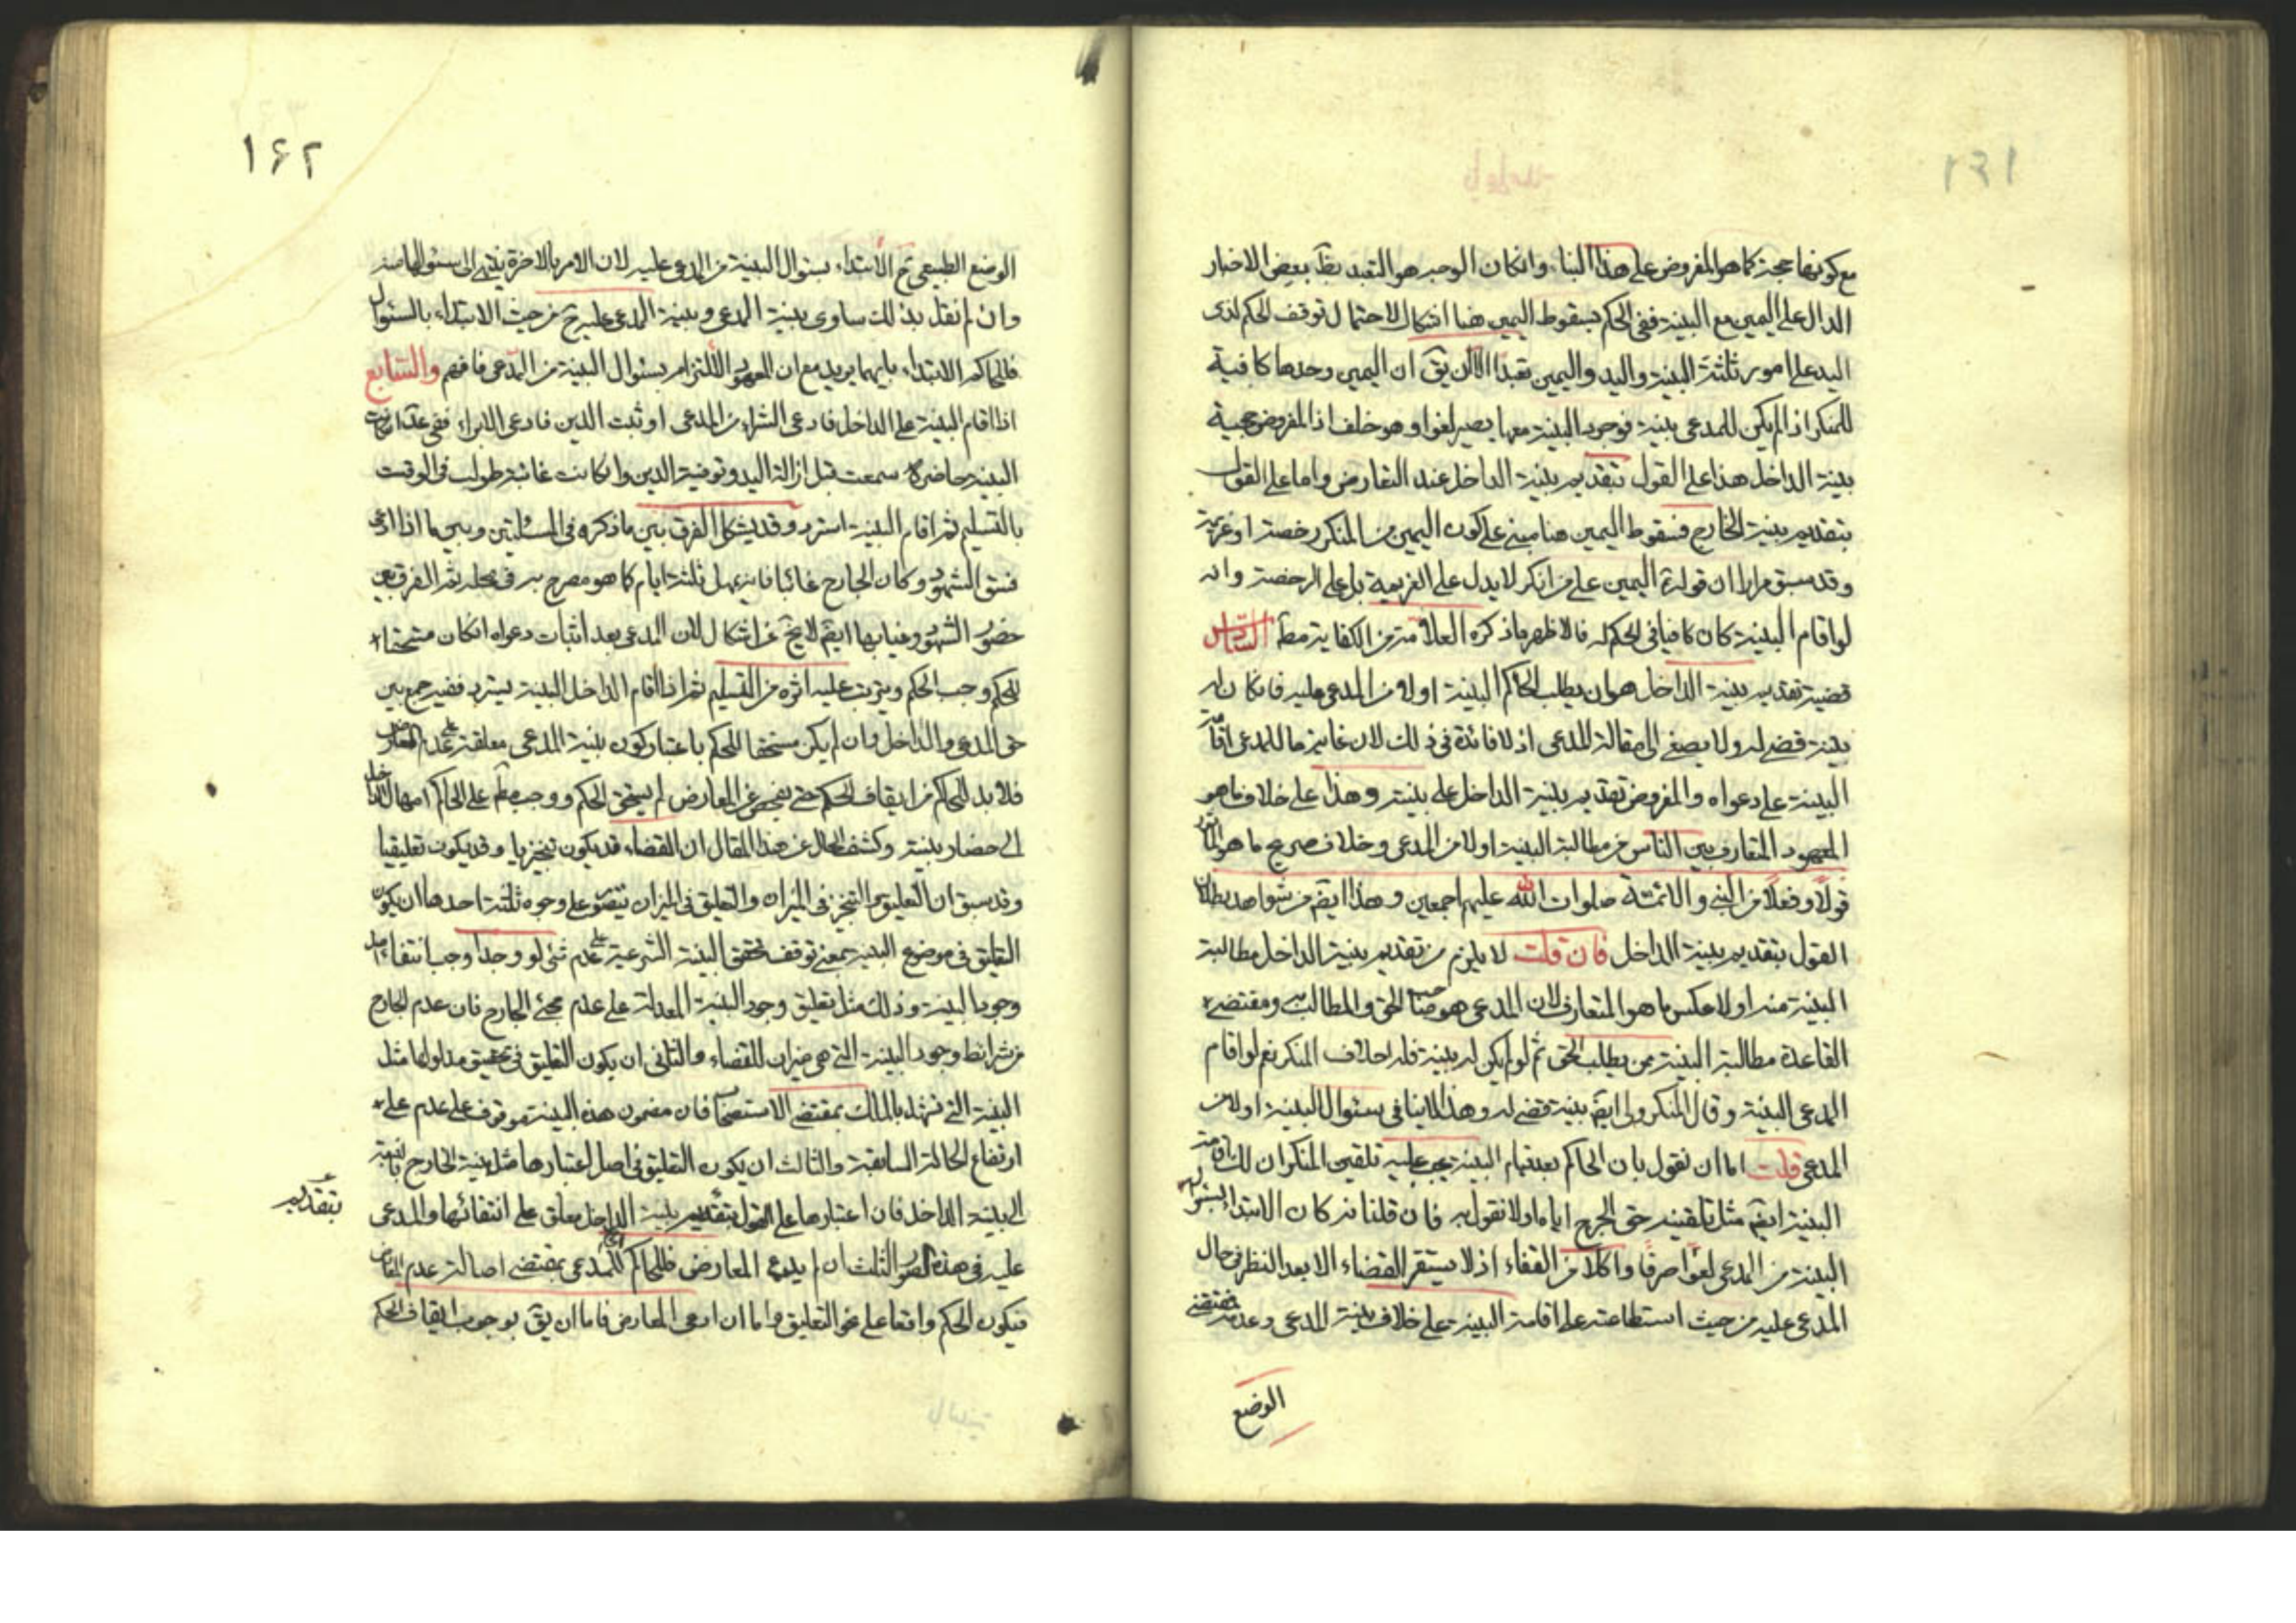 ١٦١
مع كونها حجة كما هو المفروض على هذا البناء وانكان الوجه هو التعبد بظ بعض الاخبار
الدال على اليمين مع البينة ففى الحكم بسقوط اليمين هنا اشكال لاحتمال توقف الحكم لذى
اليد على امور ثلثة البينة واليد واليمين تعبدا الا ان يق ان اليمين وحدها كافية
للمنكر اذا لم يكن للمدعى بينة فوجود البينة معها يصير لغوا وهو خلف اذ المفروض حجية
بينة الداخل هذا على القول بتقديم بينة الداخل عند التعارض واما على القول
بتقديم بينة الخارج فسقوط اليمين هنا مبنى على كون اليمين من المنكر رخصة او عزيمة
وقد سبق مرارا ان قوله اليمين على من انكر لا يدل على العزيمة بل على الرخصة وانه
لو اقام البينة كان كافيا فى الحكم له فالاظهر ما ذكره العلامة من الكفاية مط السادس
قضية تقديم بينة الداخل هو ان يطلب الحاكم البينة اولا من المدعى عليه فانكان له
بينة قضى له ولا يصغى الى مقالة المدعى اذ لا فائدة فى ذلك لان غاية ما للمدعى اقامة
البينة على دعواه والمفروض تقديم بينة الداخل على بينته وهذا على خلاف ما هو
المعهود المتعارف بين الناس من مطالبة البينة اولا من المدعى وخلاف صريح ما هو المأثور
قولا وفعلا من النبى والائمة صلوات الله عليهم اجمعين وهذا ايضا من شواهد بطلان
القول بتقديم بينة الداخل فان قلت لا يلزم من تقديم بينة الداخل مطالبة
البينة منه اولا عكس ما هو المتعارف لان المدعى هو صاحب الحق والمطالب به ومقتضى
القاعدة مطالبة البينة ممن يطلب الحق ثم لو لم يكن له بينة فله احلاف المنكر نعم لو اقام
المدعى البينة وقال المنكر ولى ايضا بينة قضى له وهذا لا ينافى بسئوال البينة اولا من
المدعى قلت اما ان نقول بان الحاكم بعد تمام البينة يجب عليه تلقين المنكر ان لك اقامة
البينة ايضا مثل تلقينه حق الجرح اياه او لا نقول به فان قلنا به كان الابتداء بسئوال
البينة من المدعى لغوا صرفا واكلا من القفاء اذ لا يستقر القضاء الا بعد النظر فى حال
المدعى عليه من حيث استطاعته على اقامة البينة على خلاف بينة المدعى وعدمه فمقتضى
الوضع
١٦٢
الوضع الطبيعى ح الابتداء بسئوال البينة من المدعى عليه لان الامر بالاخرة ينتهى الى سئوالها منه
وان لم نقل بذلك ساوى بينة المدعى وبينة المدعى عليه ح من حيث الابتداء بالسئوال
فللحاكم الابتداء بايهما يريد مع ان المعهود الالتزام بسئوال البينة من المدعى فافهم والسابع
اذا اقام البينة على الداخل فادعى الشراء من المدعى او ثبت الدين فادعى الابراء ففى عد ان كانت
البينة حاضرة سمعت قبل ازالة اليد وتوفية الدين وان كانت غائبة طولب فى الوقت
بالتسليم ثم اذا اقام البينة استرد وقد يشكل الفرق بين ما ذكره فى المسئلتين وبين ما اذا ادعى
فسق الشهود وكان الجارح غائبا فانه يمهل ثلثة ايام كما هو مصرح به فى محله ثم الفرق بين
حضور الشهود وغيابها ايضا لا يخ عن اشكال لان المدعى بعد اثبات دعواه انكان مستحقا
للحكم وجب الحكم ويترتب عليه اثره من التسليم ثم اذا اقام الداخل البينة يسترد ففيه جمع بين
حق المدعى والداخل وان لم يكن مستحقا للحكم باعتبار كون بينة المدعى معلقة على عدم المعارض
فلا بد للحاكم من ايقاف الحكم حتى يفحص عن المعارض لم يستحق الحكم ووجب مط على الحاكم امهال الداخل
الى احضار بينته وكشف الحال عن هذا المقال ان القضاء قد يكون تنجيزيا وقد يكون تعليقيا
وقد سبق ان التعليق والتنجيز فى الميزان والتعليق فى الميزان يتصور على وجوه ثلثة احدها ان يكون
التعليق فى موضوع البينة بمعنى توقف تحقق البينة الشرعية على عدم شئ لو وجد اوجب انتفاء اصل
وجود البينة وذلك مثل تعليق وجود البينة المعدلة على عدم مجئ الجارح فان عدم الجارح
من شرائط وجود البينة التى هى ميزان للقضاء والثانى ان يكون التعليق فى تحقيق مدلولها مثل
البينة التى تشهد بالملك بمقتضى الاستصحاب فان مضمون هذه البينة موقوف على عدم علم
ارتفاع الحالة السابقة والثالث ان يكون التعليق فى اصل اعتبارها مثل بينة الخارج بالنسبة
الى بينة الداخل فان اعتبارها على القول بتقديم بينة الداخل معلق على انتفائها والمدعى
بتقديم
عليه فى هذه الصور الثلث ان لم يدع المعارض فللحاكم الحكم للمدعى بمقتضى اصالة عدم المعارض
فيكون الحكم واقعا على نحو التعليق واما ان ادعى المعارض فاما ان يق بوجوب ايقاف الحكم